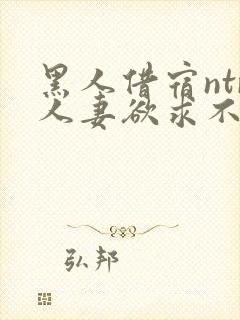 黑人借宿ntr
人妻欲求不
弘邦